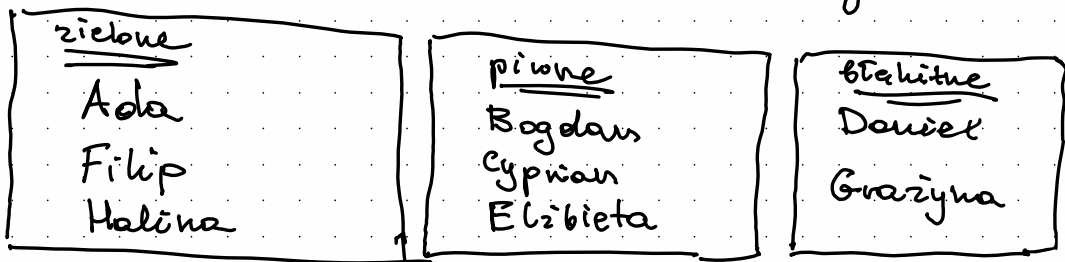 zielone
Ada
Filip
Halina
piwne
Bogdan
Cyprian
Elżbieta
błękitne
Daniel
Grażyna